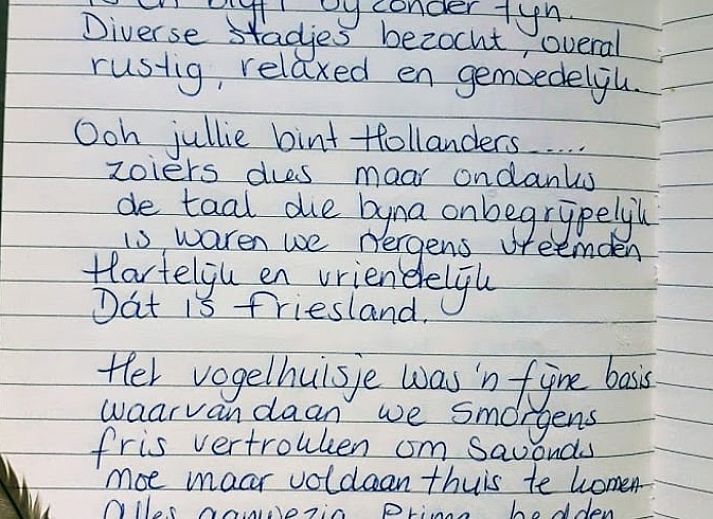 is en blijft bijzonder fijn.
Diverse stadjes bezocht, overal
rustig, relaxed en gemoedelijk.
Ooh jullie bint Hollanders.....
zoiets dus maar ondanks
de taal die byna onbegrijpelijk
is waren we nergens vreemden
Hartelijk en vriendelijk
Dát is Friesland.
Het vogelhuisje was 'n fijne basis
waarvandaan we smorgens
fris vertrokken om savonds
moe maar voldaan thuis te komen
Alles aanwezig Prima bedden